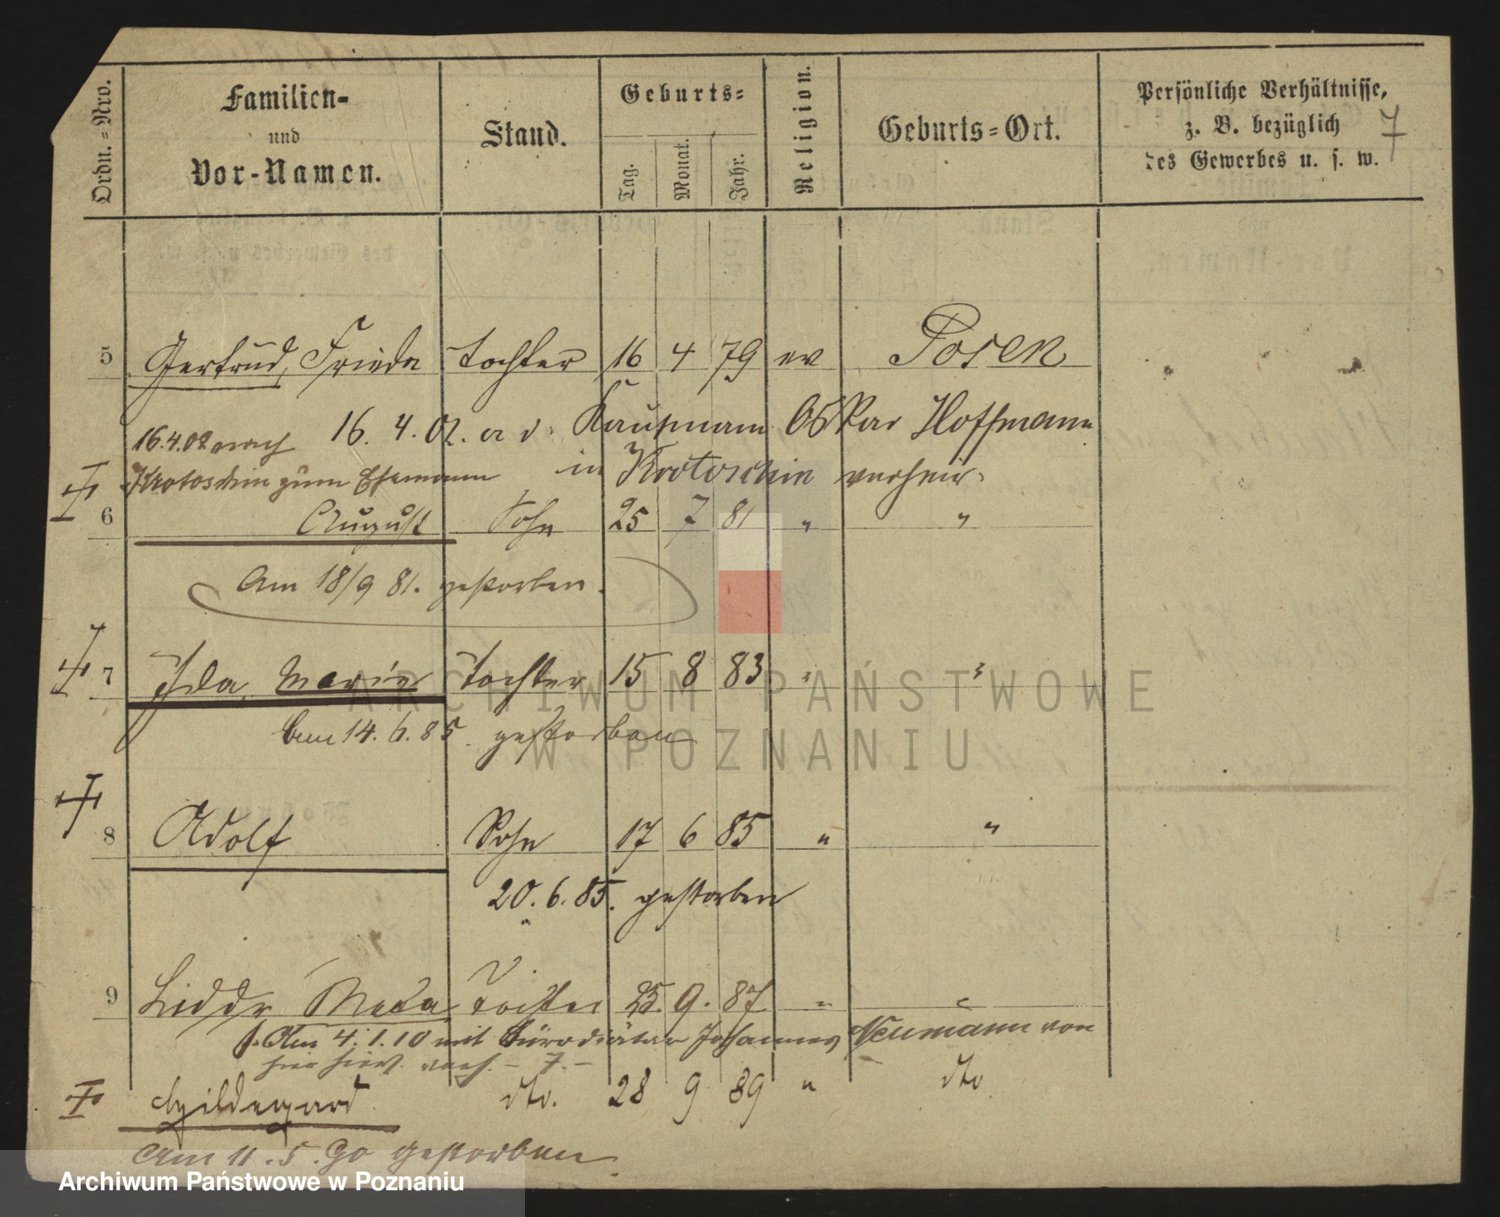 Ordn.=Nro.
Familien-
und
Vor-Namen.
Stand.
Geburts=
Tag.
Monat.
Jahr.
Religion.
Geburts=Ort.
Persönliche Verhältnisse,
z. B. bezüglich
des Gewerbes u. s. w.
7
5 Gertrud, Frieda Tochter 16 4 79 ev Posen
16. 4. 02. a d. Kaufmann Oskar Hoffmann
in Krotoschin verheir.
16.4.02 nach
Krotoschin zum Ehemann
6 August Sohn 25 7 81 " "
Am 18/9 81. gestorben.
7 Ida Marie Tochter 15 8 83 " "
Am 14. 6. 85. gestorben
8 Adolf Sohn 17 6 85 " "
20. 6. 85. gestorben
9 Meta Tochter 25. 9. 87 " "
Am 4. 1. 10 mit Bürodiätar Johannes Neumann von
hier
Hildegard dto. 28 9 89 " dto
Am 11. 5. 90 gestorben.
ARCHIWUM PAŃSTWOWE
W POZNANIU
Archiwum Państwowe w Poznaniu